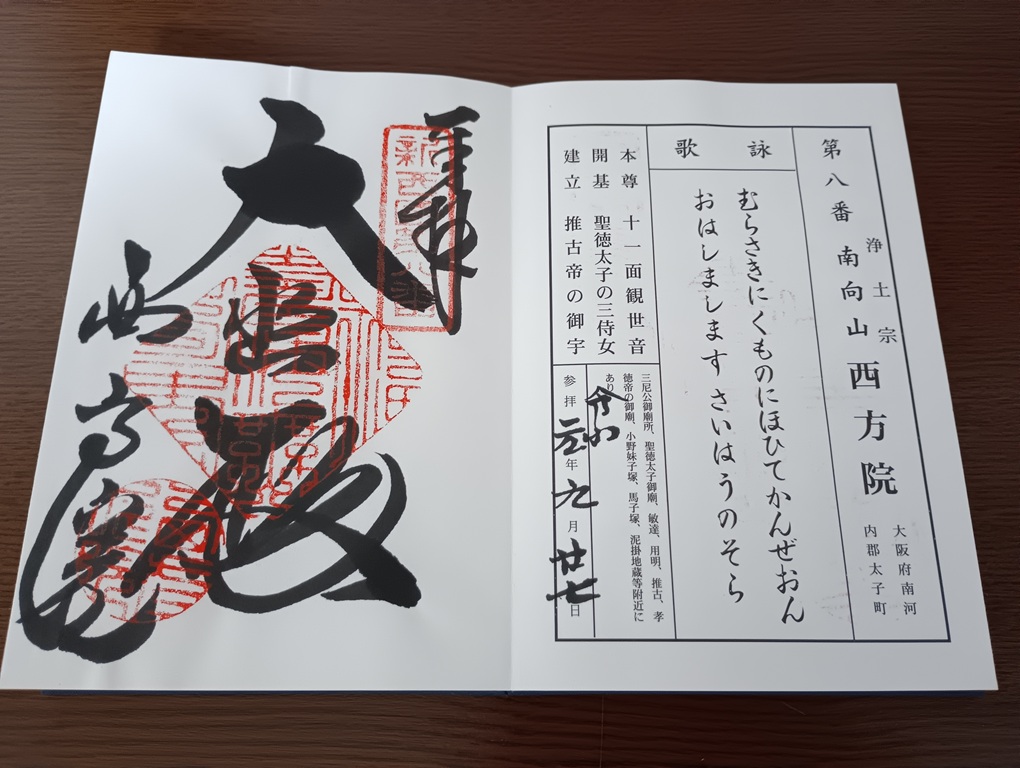 第八番 浄土宗 南向山 西方院
大阪府南河
内郡太子町
詠歌
むらさきにくものにほひてかんぜおん
おはしましますさいはうのそら
本尊 十一面観世音
開基 聖徳太子の三侍女
建立 推古帝の御宇
三尼公御廟所、聖徳太子御廟、敏達、用明、推古、孝
徳帝の御廟、小野妹子塚、馬子塚、泥掛地蔵等附近に
あり
参拝 令和元年九月廿七日
奉拝
大悲殿
西方院